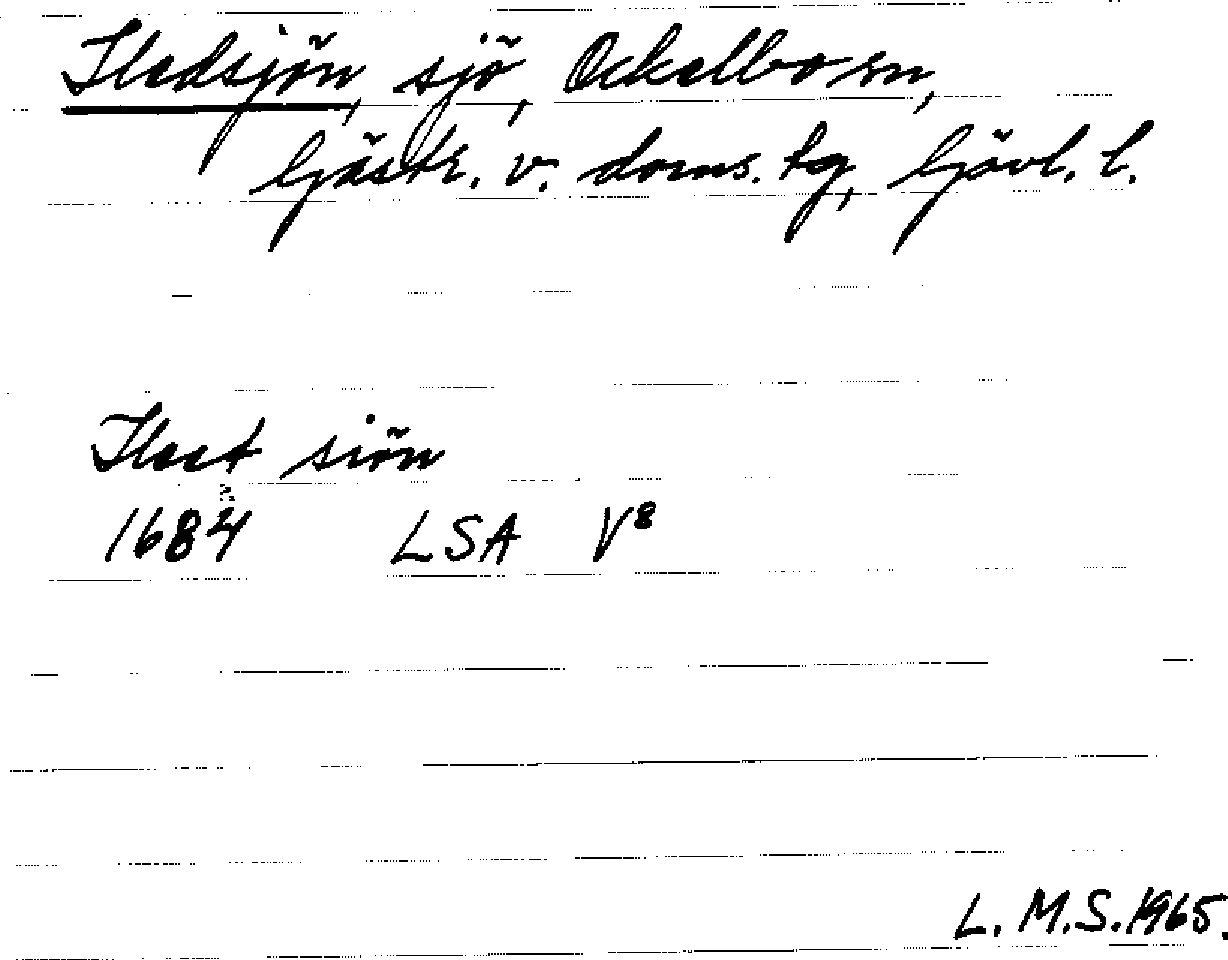 Hedsjön, sjö, Ockelbo sn,
Gästr. v. doms. tg, Gävl. l.
Heet siön
1684 LSA V8
L. M.S. 1965.